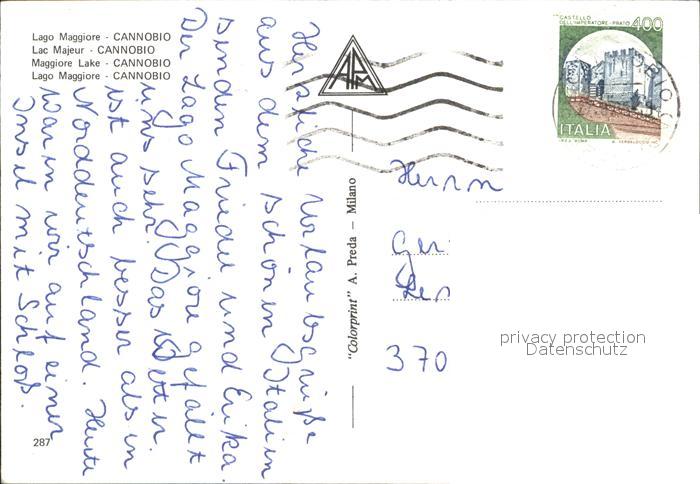 Lago Maggiore - CANNOBIO
Lac Majeur - CANNOBIO
Maggiore Lake - CANNOBIO
Lago Maggiore - CANNOBIO
Herzliche Urlaubsgrüße
aus dem schönen Italien
senden Friedel und Erika.
Der Lago Maggiore gefällt
uns sehr. Das Wetter
ist auch besser als in
Norddeutschland. Heute
waren wir auf einer
Insel mit Schloß.
287
"Colorprint" A. Preda – Milano
CASTELLO
DELL'IMPERATORE-PRATO
400
ITALIA
Herrn
Ger
370
privacy protection
Datenschutz